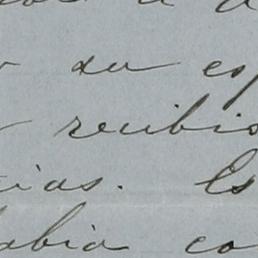 su es
recibio
ias. Es
abia co